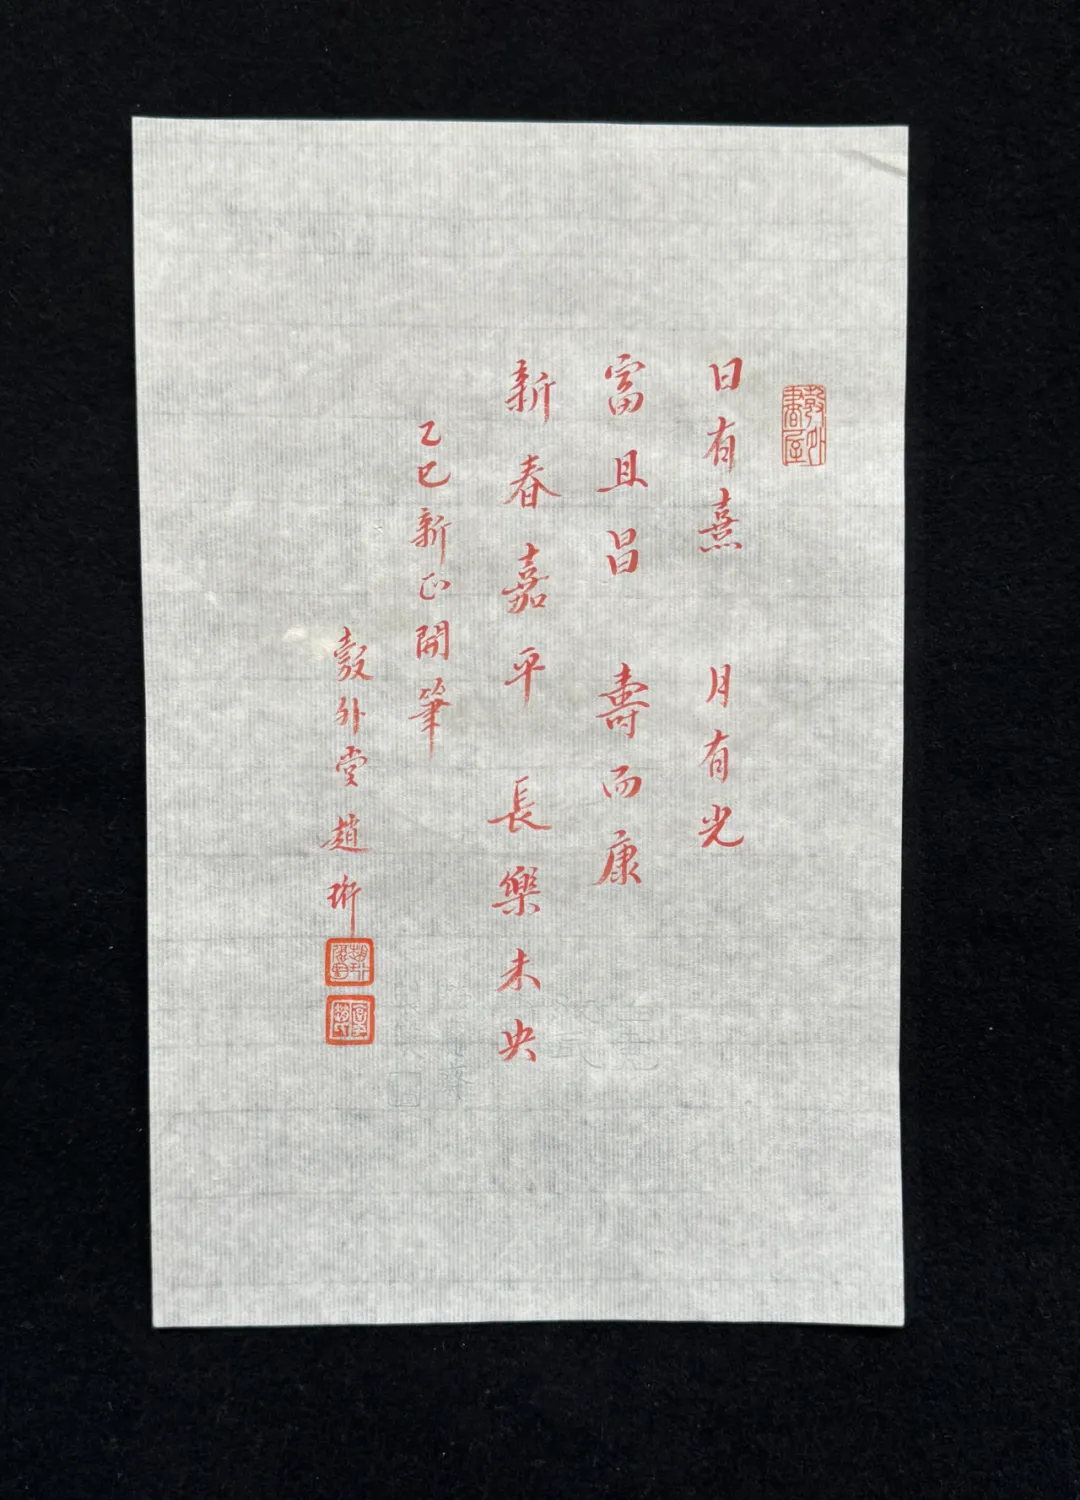 日有熹 月有光
富且昌 壽而康
新春嘉平 長樂未央
乙巳新正開筆
彀外堂趙珩
彀外書屋